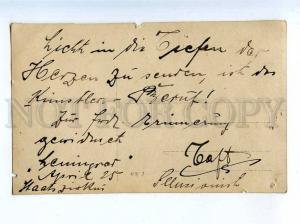 Licht in die Tiefen der
Herzen zu senden, ist des
Künstlers Beruf!
Zur Erinnerung
gewidmet
Leningrad
April 25